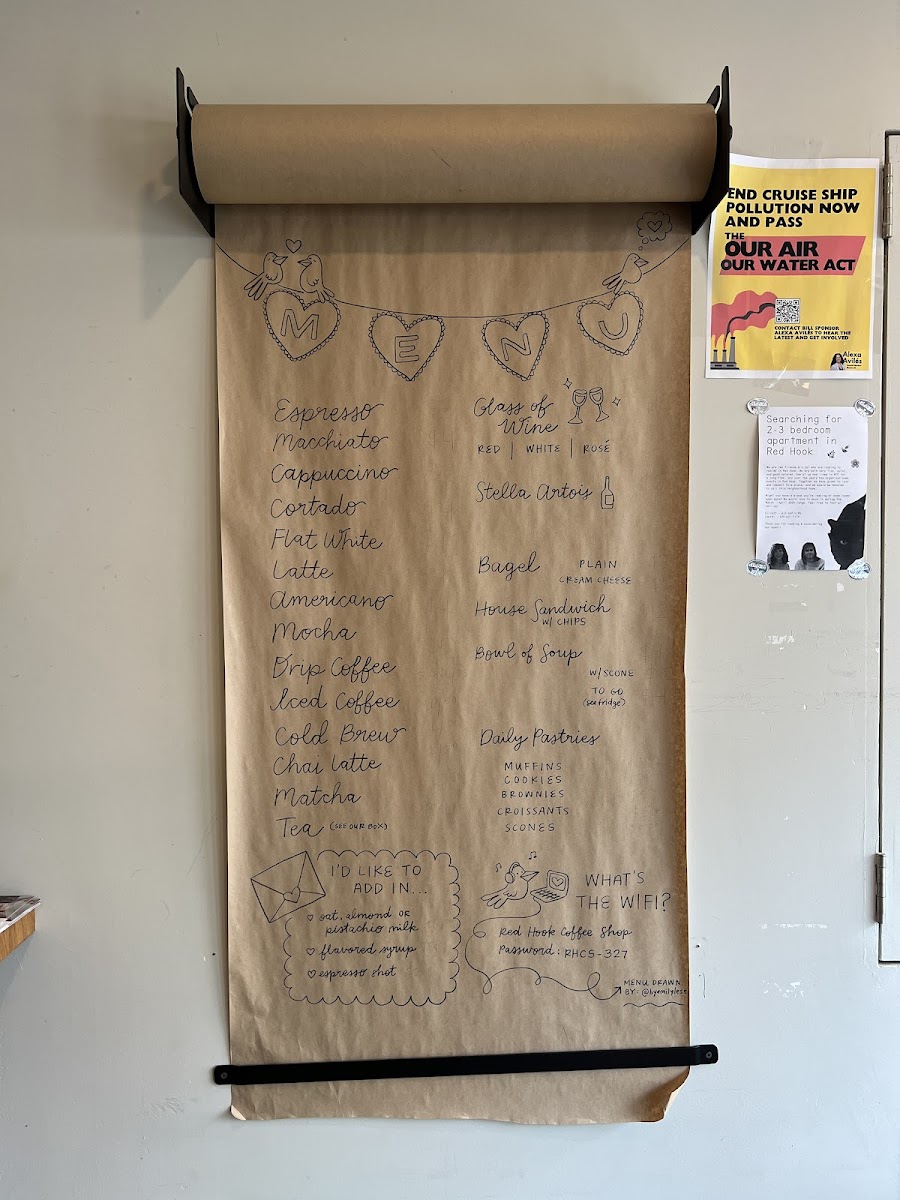 M E N U
Espresso
Macchiato
Cappuccino
Cortado
Flat White
Latte
Americano
Mocha
Drip Coffee
Iced Coffee
Cold Brew
Chai latte
Matcha
Tea (SEE OUR BOX)
Glass of
Wine
RED | WHITE | ROSÉ
Stella Artois
Bagel PLAIN
CREAM CHEESE
House Sandwich
W/ CHIPS
Bowl of Soup
W/SCONE
TO GO
(see fridge)
Daily Pastries
MUFFINS
COOKIES
BROWNIES
CROISSANTS
SCONES
I'D LIKE TO
ADD IN...
oat, almond OR
pistachio milk
flavored syrup
espresso shot
WHAT'S
THE WIFI?
Red Hook Coffee Shop
Password: RHCS-327
MENU DRAWN
BY:
END CRUISE SHIP
POLLUTION NOW
AND PASS
THE
OUR AIR
OUR WATER ACT
CONTACT BILL SPONSOR
ALEXA AVILÉS TO HEAR THE
LATEST AND GET INVOLVED
Alexa
Avilés
Searching for
2-3 bedroom
apartment in
Red Hook